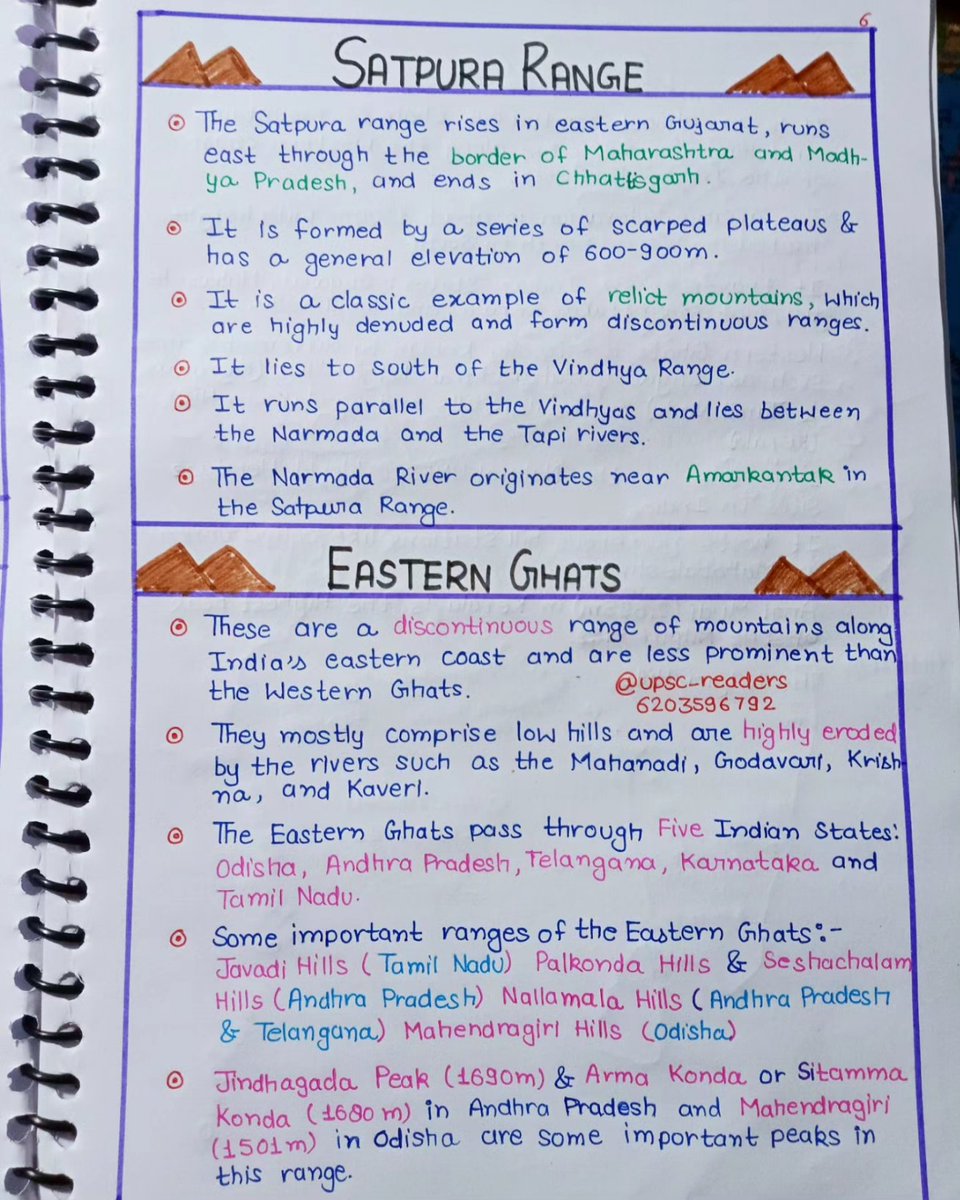 6
SATPURA RANGE
The Satpura range rises in eastern Gujarat, runs
east through the border of Maharashtra and Madh-
ya Pradesh, and ends in Chhattisgarh.
It is formed by a series of scarped plateaus &
has a general elevation of 600-900m.
It is a classic example of relict mountains, which
are highly denuded and form discontinuous ranges.
It lies to south of the Vindhya Range.
It runs parallel to the Vindhyas and lies between
the Narmada and the Tapi rivers.
The Narmada River originates near Amarkantak in
the Satpura Range.
EASTERN GHATS
These are a discontinuous range of mountains along
India's eastern coast and are less prominent than
the Western Ghats.
@upsc_readers
6203596792
They mostly comprise low hills and are highly eroded
by the rivers such as the Mahanadi, Godavari, Krish-
na, and Kaveri.
The Eastern Ghats pass through Five Indian States:
Odisha, Andhra Pradesh, Telangana, Karnataka and
Tamil Nadu.
Some important ranges of the Eastern Ghats:-
Javadi Hills (Tamil Nadu) Palkonda Hills & Seshachalam
Hills (Andhra Pradesh) Nallamala Hills (Andhra Pradesh
& Telangana) Mahendragiri Hills (Odisha)
Jindhagada Peak (1690m) & Arma Konda or Sitamma
Konda (1680 m) in Andhra Pradesh and Mahendragiri
(1501m) in Odisha are some important peaks in
this range.